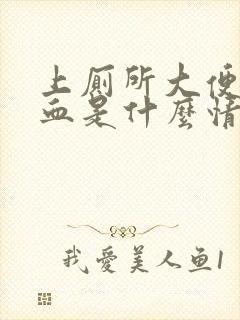 上厕所大便
血是什麼情
我爱美人鱼1